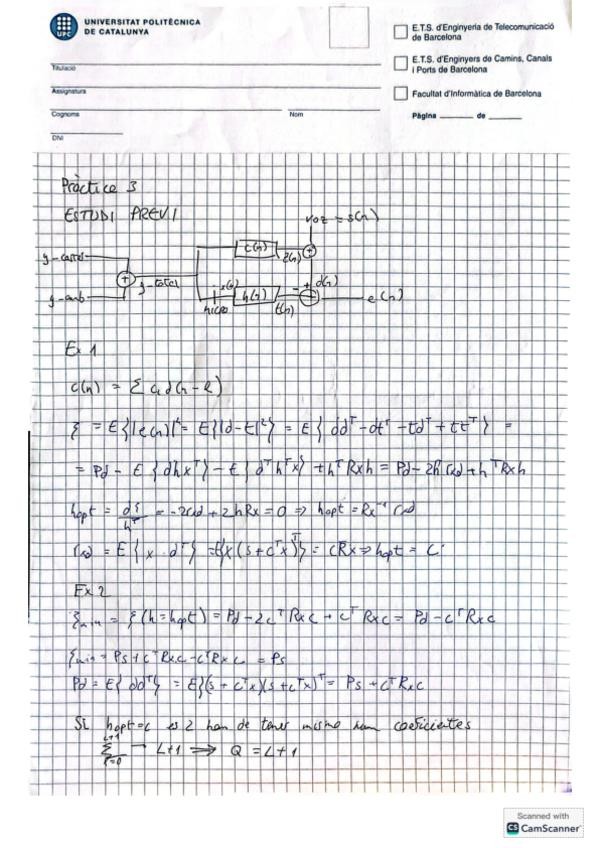 UNIVERSITAT POLITÈCNICA
DE CATALUNYA
UPC
E.T.S. d'Enginyeria de Telecomunicació
de Barcelona
E.T.S. d'Enginyers de Camins, Canals
i Ports de Barcelona
Facultat d'Informàtica de Barcelona
Pàgina de
Titulació
Assignatura
Cognoms Nom
DNI
Pràctice 3
ESTUDI PREVI
voz = s(n)
y-castel c(n) z(n)
y-total d(n)
y-amb x(n) h(n) t(n) e(n)
micro
Ex 1
c(n) = Σ cl d(n-l)
ξ = E{|e(n)|² = E{|d-t|²} = E{dd^T - dt^T - td^T + tt^T} =
= Pd - E{dhx^T} - E{d^T h^T x} + h^T Rx h = Pd - 2h^T rxd + h^T Rx h
hopt = dξ/h^T = -2rxd + 2hRx = 0 => hopt = Rx⁻¹ rxd
rxd = E{x·d^T} = E{x(s+c^T x)^T} = cRx => hopt = c
Ex 2
ξmin = ξ(h=hopt) = Pd - 2c^T Rx c + c^T Rx c = Pd - c^T Rx c
ξmin = Ps + c^T Rx c - c^T Rx c = Ps
Pd = E{dd^T} = E{(s+c^T x)(s+c^T x)^T = Ps + c^T Rx c
Si hopt=c es 2 han de tener mismo num coeficientes
L+1
Σ → L+1 => Q = L+1
Scanned with
CS CamScanner